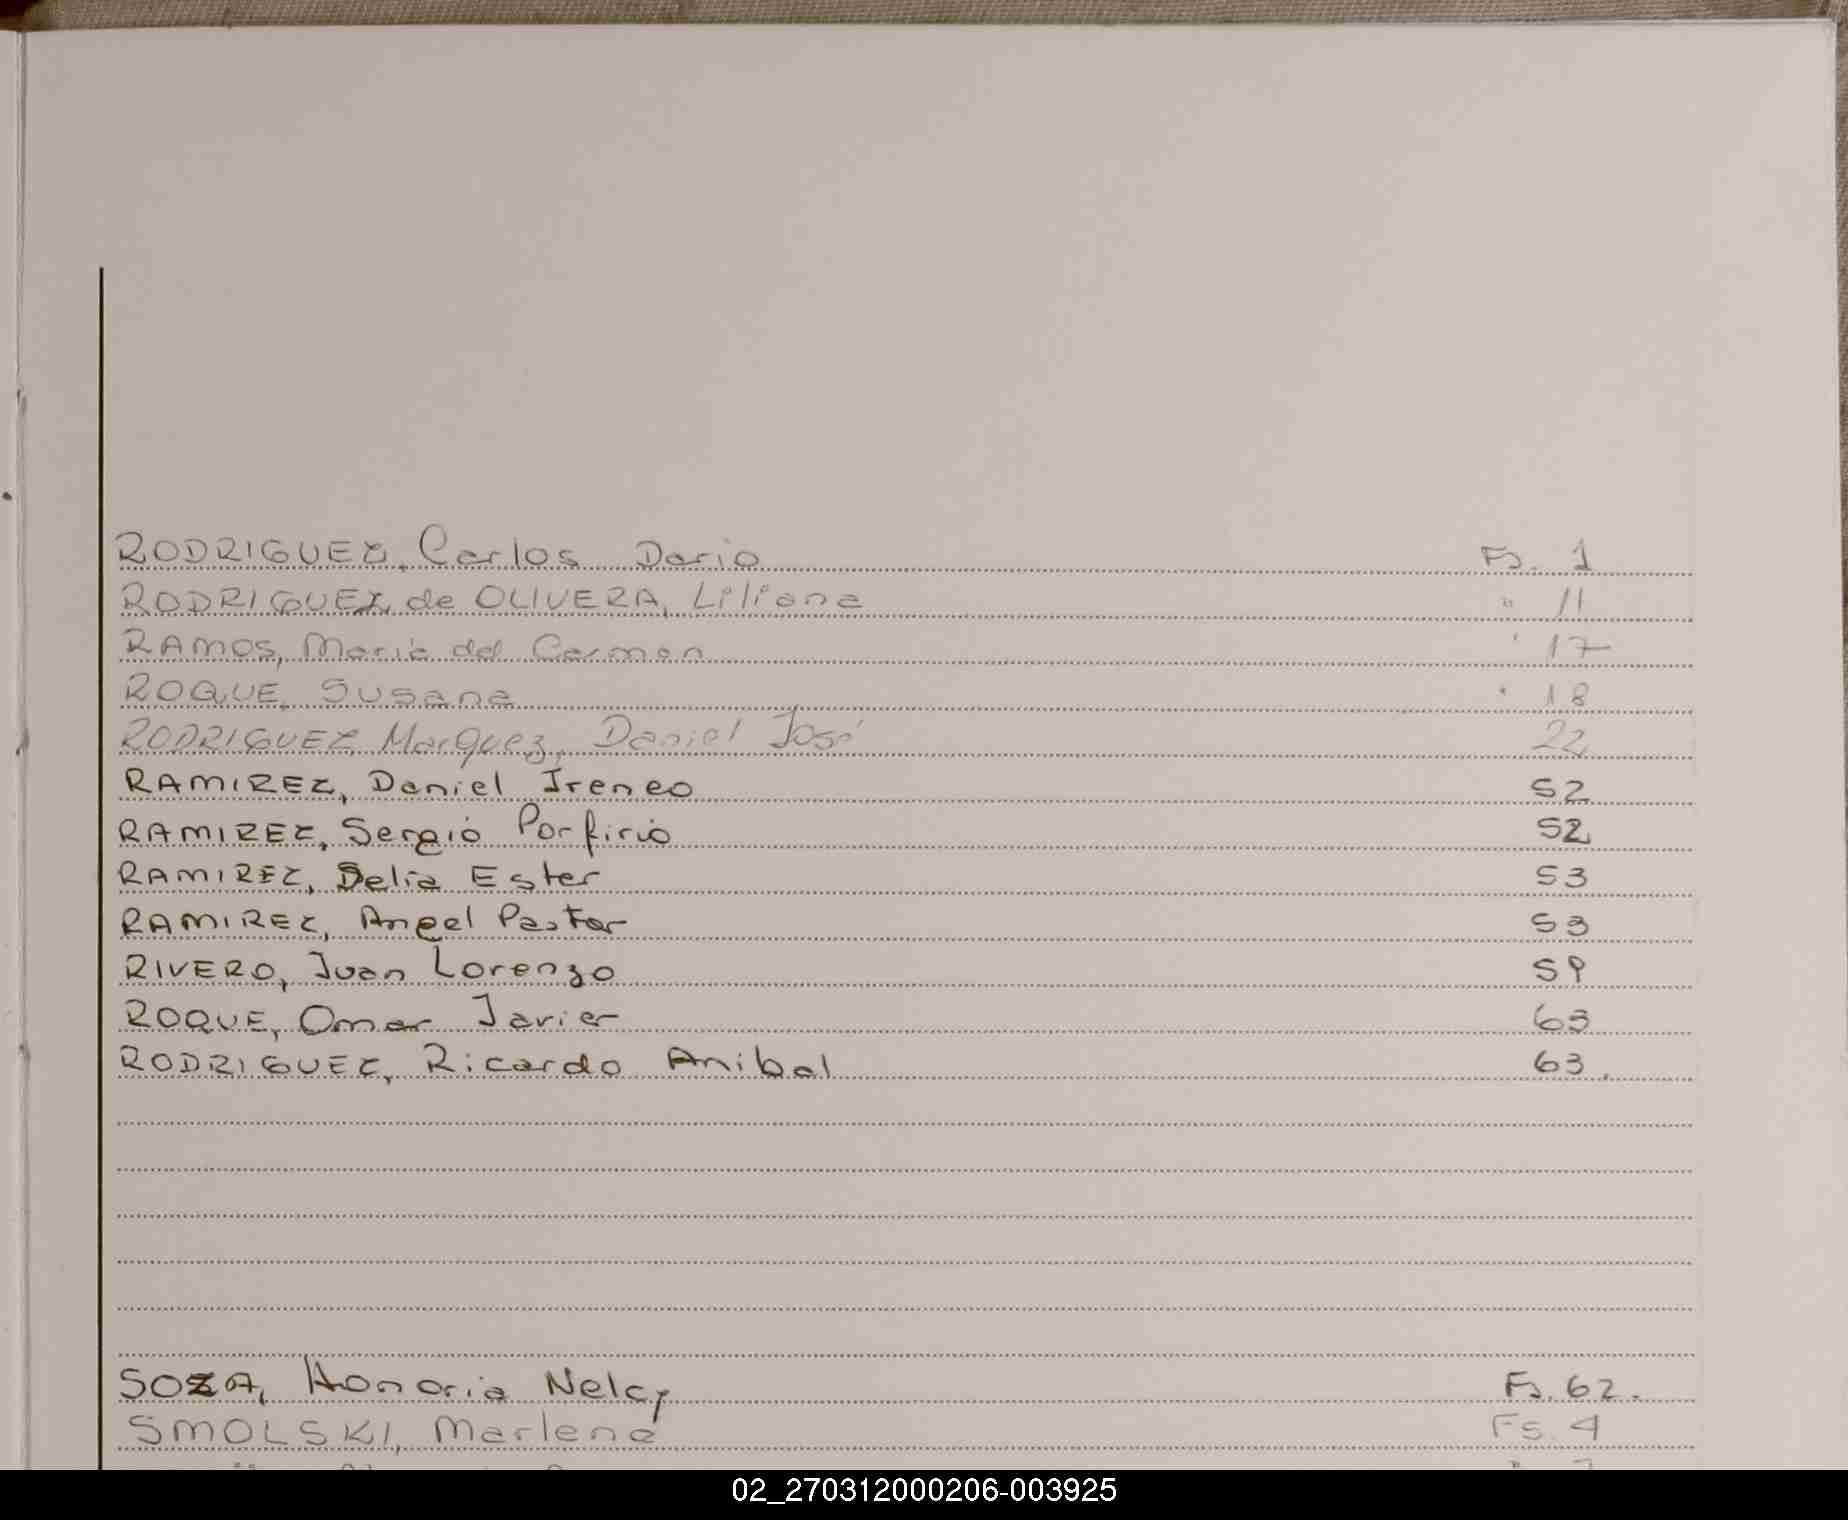 RODRIGUEZ, Carlos Dario Fs. 1
RODRIGUEZ de OLIVERA, Liliana " 11
RAMOS, Maria del Carmen " 17
ROQUE, Susana " 18
RODRIGUEZ Marquez, Daniel José 22
RAMIREZ, Daniel Ireneo 52
RAMIREZ, Sergio Porfirio 52
RAMIREZ, Delia Ester 53
RAMIREZ, Angel Pastor 53
RIVERO, Juan Lorenzo 59
ROQUE, Omar Javier 63
RODRIGUEZ, Ricardo Anibal 63.
SOZA, Honoria Nelcy Fs. 62.
SMOLSKI, Marlene Fs. 4
02_270312000206-003925